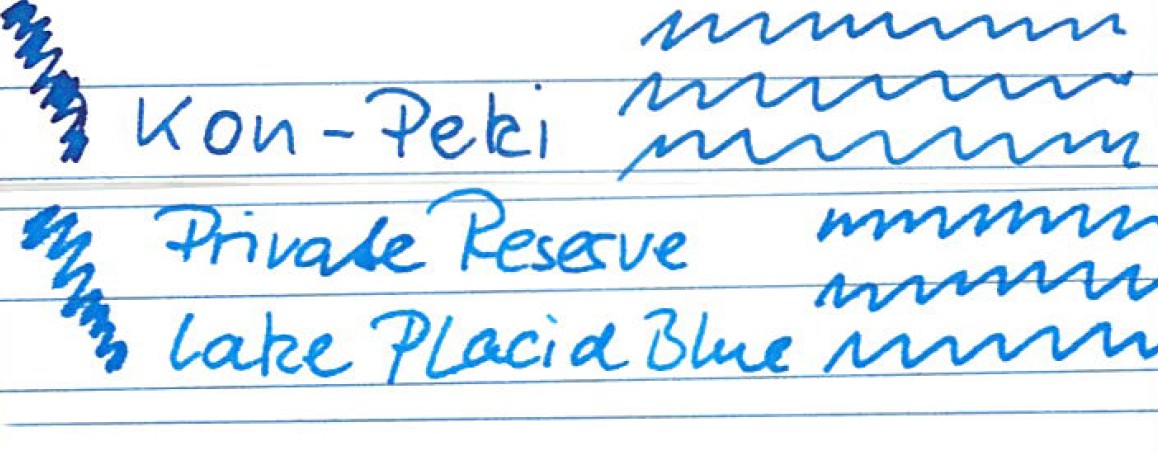 Kon-Peki
Private Reserve
Lake Placid Blue